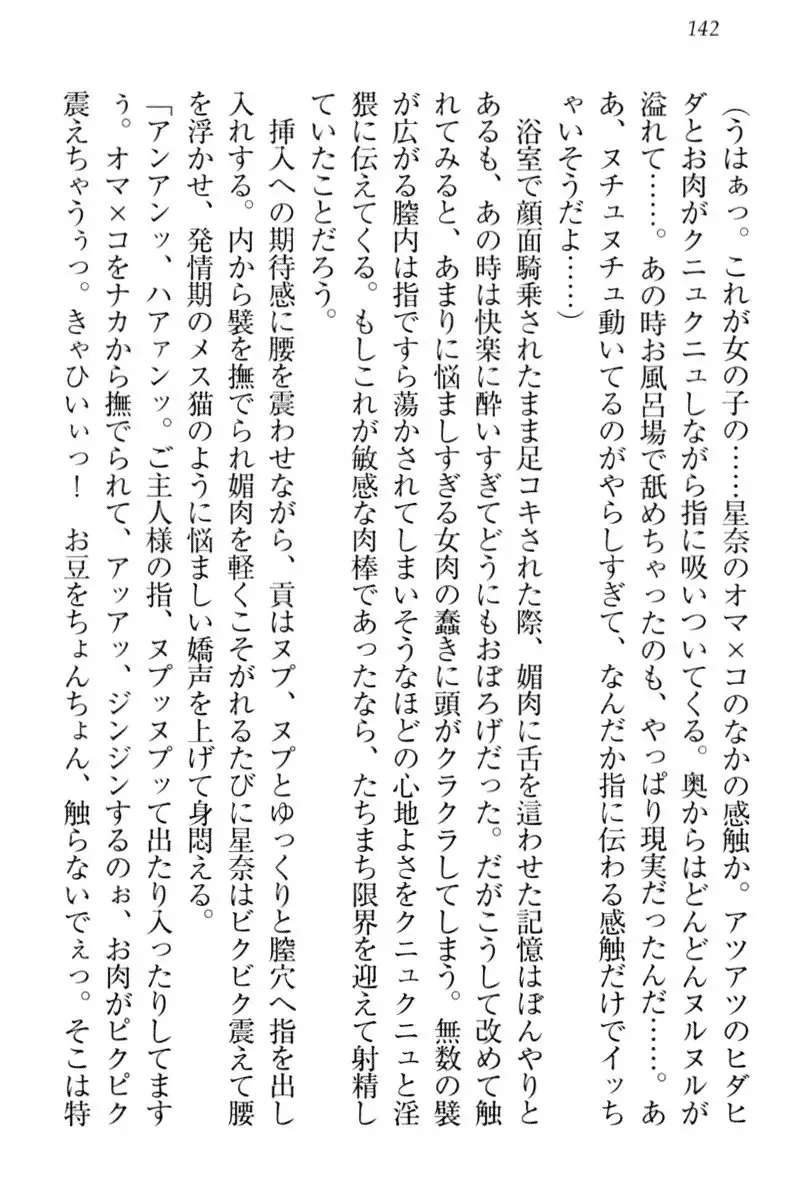 142
（うはぁっ。これが女の子の……星奈のオマ×コのなかの感触か。アツアツのヒダヒ
ダとお肉がクニュクニュしながら指に吸いついてくる。奥からはどんどんヌルヌルが
溢れて……。あの時お風呂場で舐めちゃったのも、やっぱり現実だったんだ……。あ
あ、ヌチュヌチュ動いてるのがやらしすぎて、なんだか指に伝わる感触だけでイッち
ゃいそうだよ……）
　浴室で顔面騎乗されたまま足コキされた際、媚肉に舌を這わせた記憶はぼんやりと
あるも、あの時は快楽に酔いすぎてどうにもおぼろげだった。だがこうして改めて触
れてみると、あまりに悩ましすぎる女肉の蠢きに頭がクラクラしてしまう。無数の襞
が広がる膣内は指ですら蕩かされてしまいそうなほどの心地よさをクニュクニュと淫
猥に伝えてくる。もしこれが敏感な肉棒であったなら、たちまち限界を迎えて射精し
ていたことだろう。
　挿入への期待感に腰を震わせながら、貢はヌプ、ヌプとゆっくりと膣穴へ指を出し
入れする。内から襞を撫でられ媚肉を軽くこそがれるたびに星奈はビクビク震えて腰
を浮かせ、発情期のメス猫のように悩ましい嬌声を上げて身悶える。
「アンアンッ、ハアァンッ。ご主人様の指、ヌプッヌプッて出たり入ったりしてます
ぅ。オマ×コをナカから撫でられて、アッアッ、ジンジンするのぉ、お肉がピクピク
震えちゃうぅっ。きゃひいぃっ！　お豆をちょんちょん、触らないでぇっ。そこは特